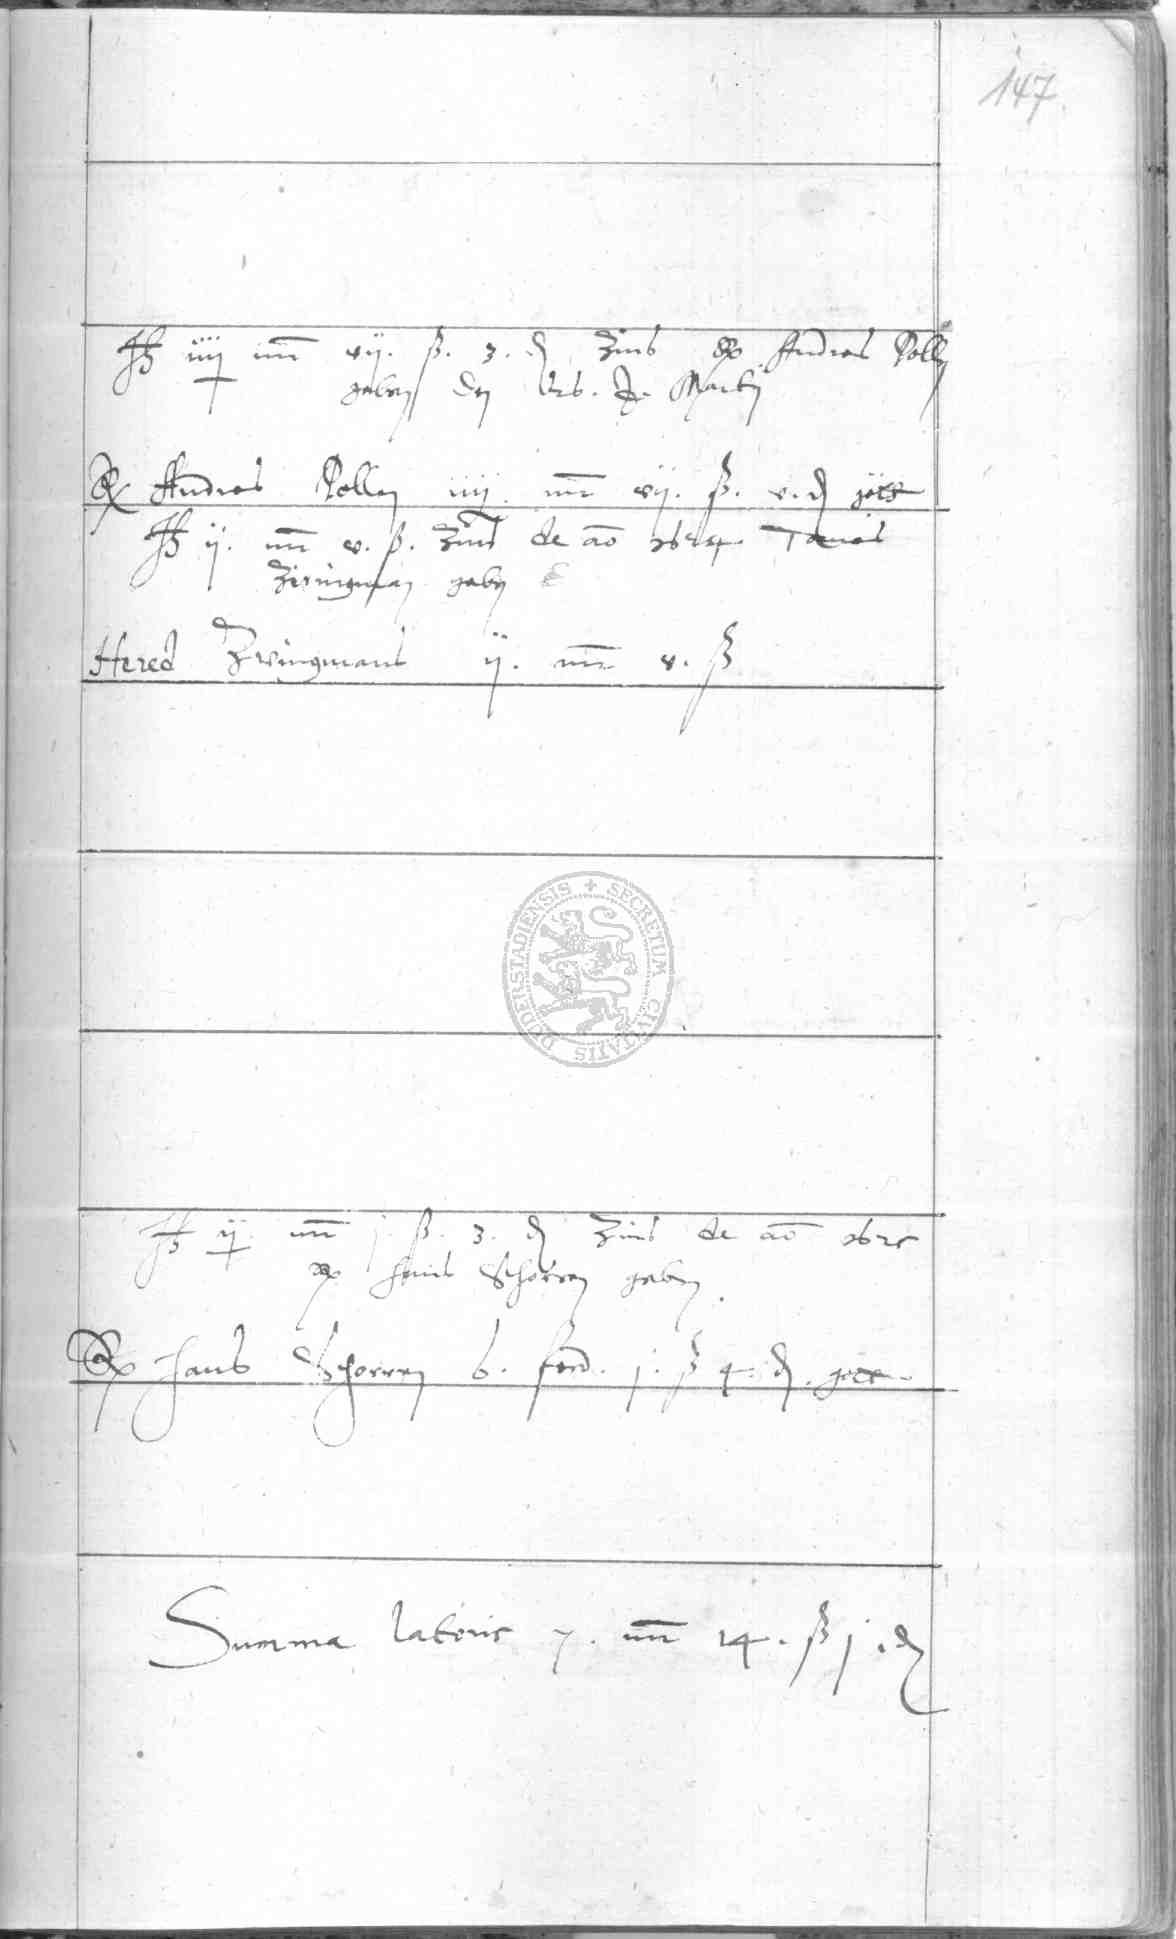 147.
iiij mr vij. ß. 3. d Zins Andreas Polle
geben den Martij
Andreas Pollen iiij mr vij. ß. v. d
ij. mr v. ß. Zins de ao 1624
Zwingman geben
Hered Zwingmans ij. mr v. ß
SECRETUM CIVITATIS DUDERSTADIENSIS
ij. mr j. ß. 3. d Zins de ao 1625
Hans Schorren geben
Hans Schorren 6. ferd. j. ß 4. d.
Summa lateris 7. mr 14. ß j. d